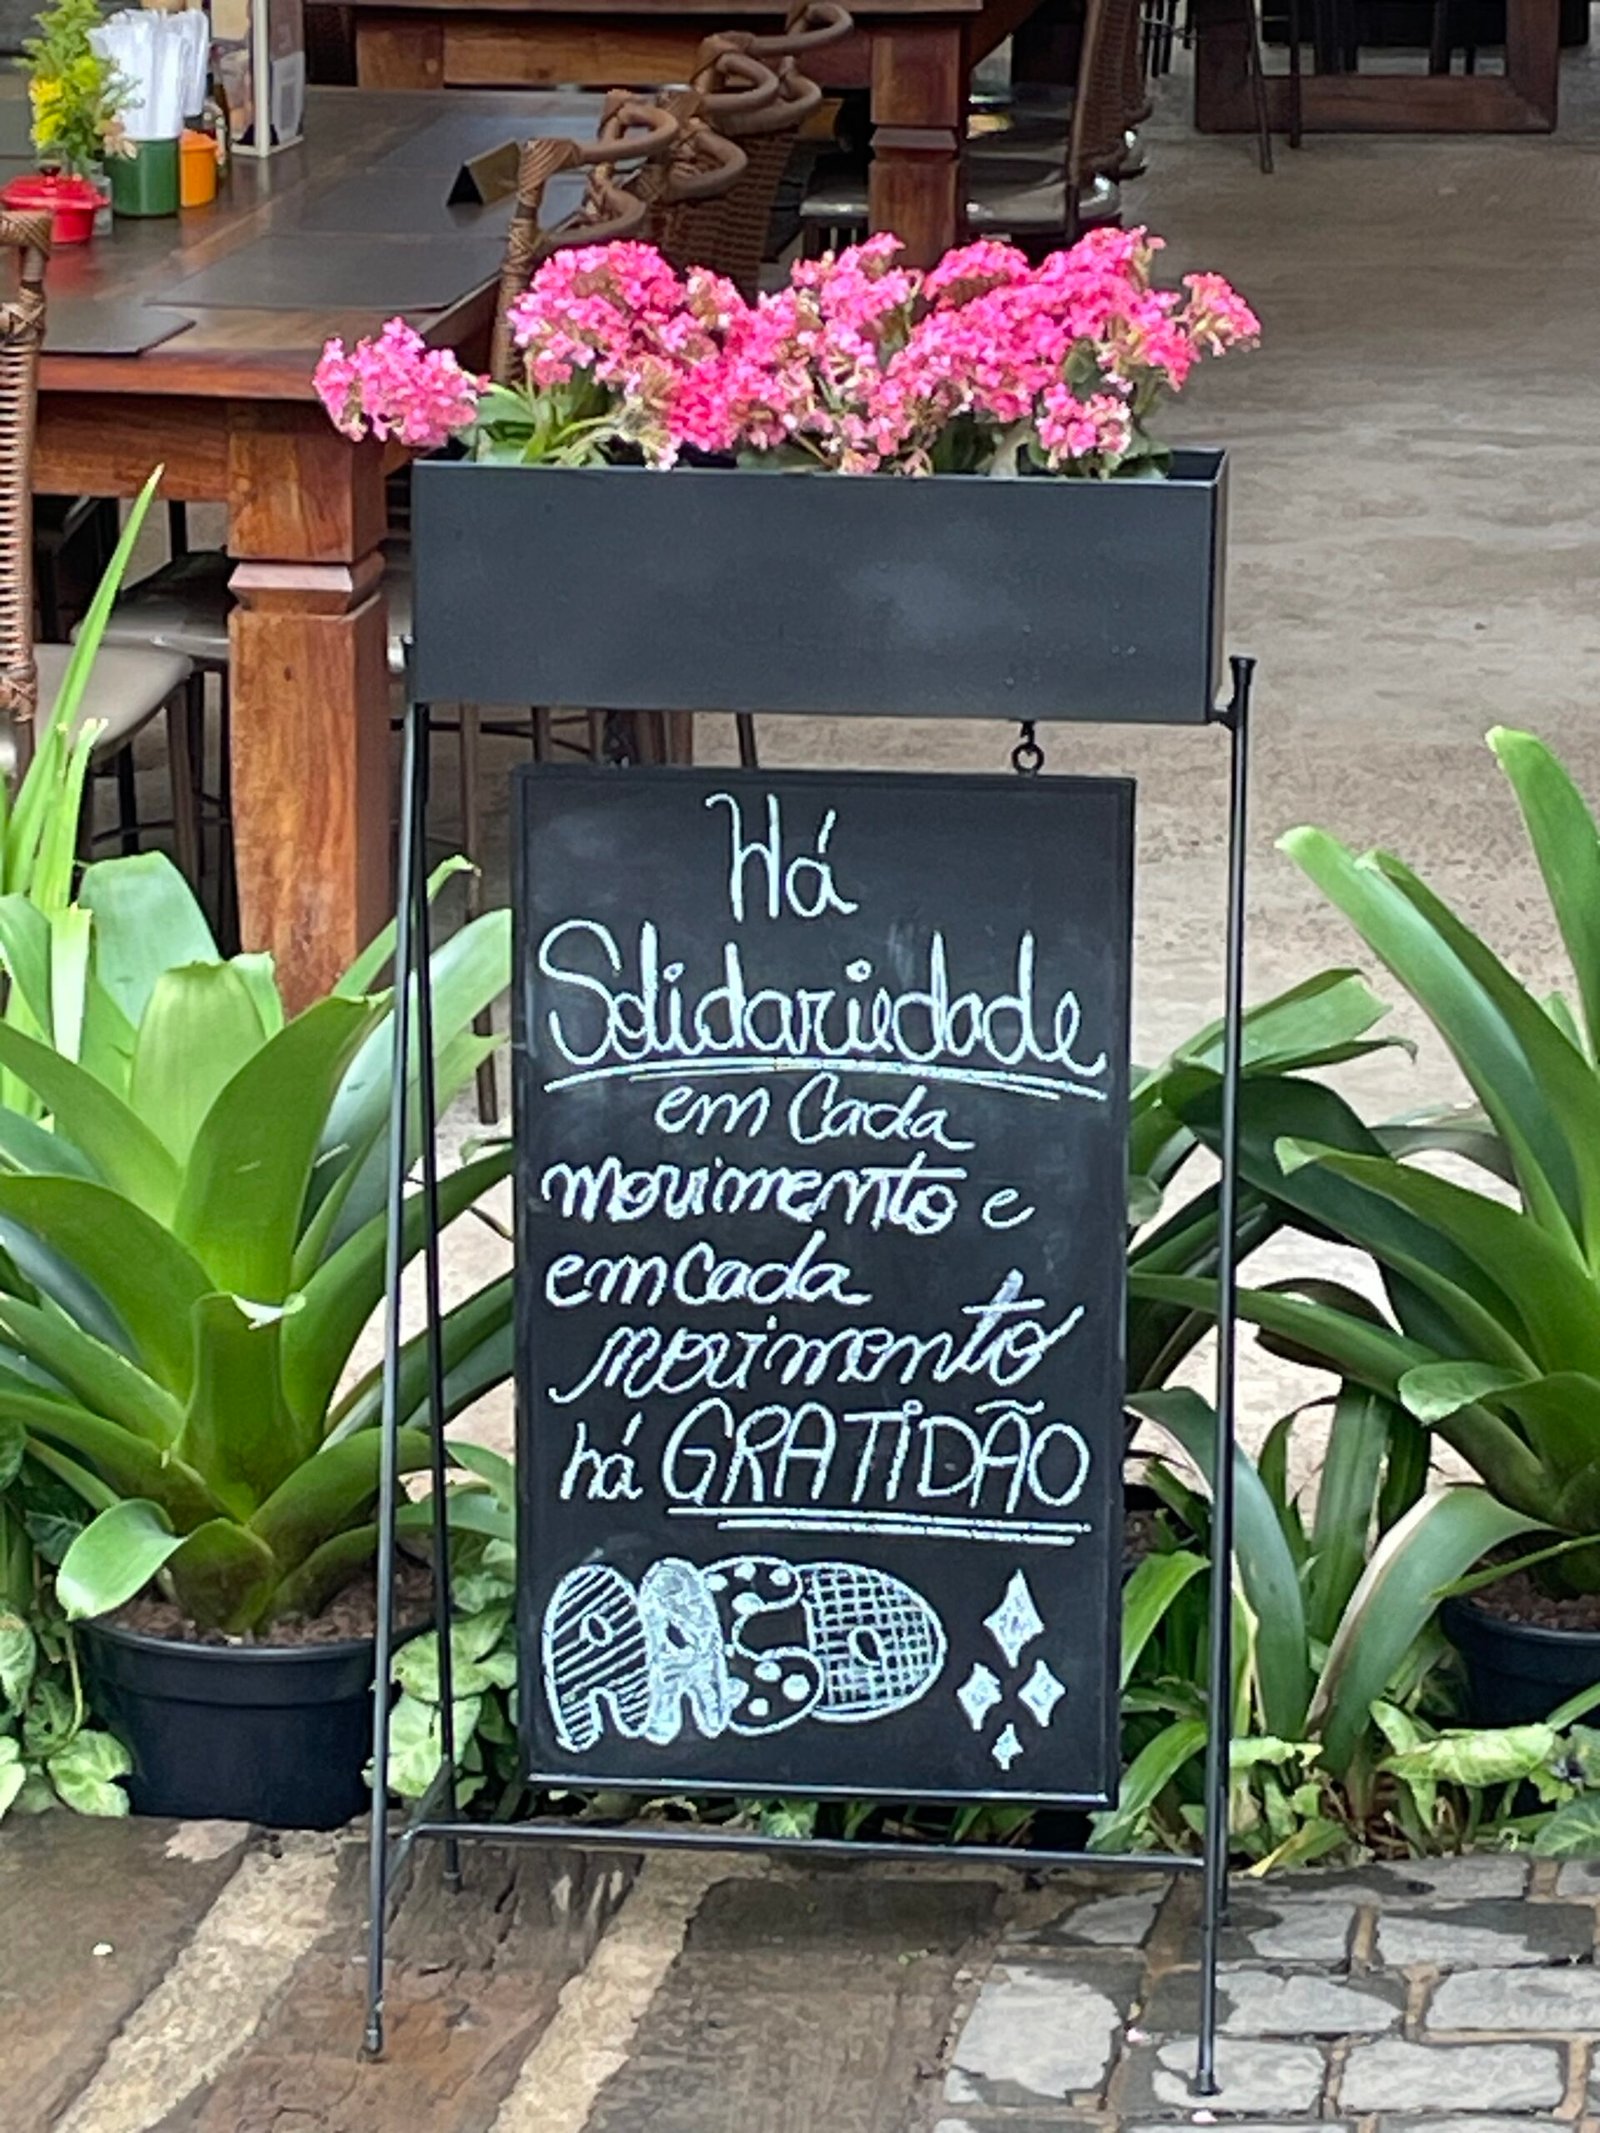 Há
Solidariedade
em Cada
movimento e
em cada
movimento
há GRATIDÃO
AASD